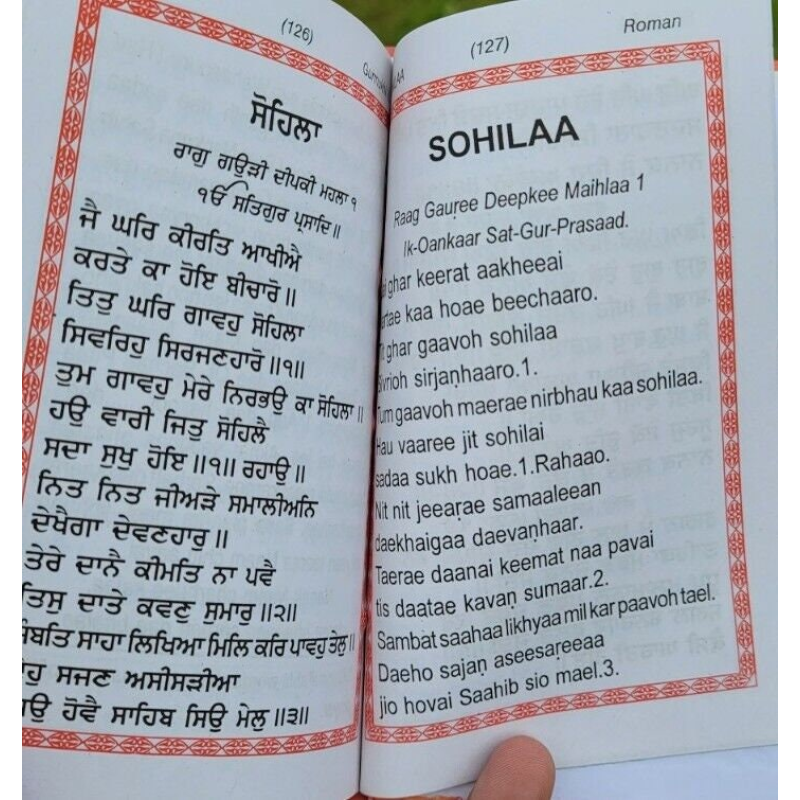 (126)
ਸੋਹਿਲਾ
ਰਾਗੁ ਗਉੜੀ ਦੀਪਕੀ ਮਹਲਾ ੧
ੴ ਸਤਿਗੁਰ ਪ੍ਰਸਾਦਿ॥
ਜੈ ਘਰਿ ਕੀਰਤਿ ਆਖੀਐ
ਕਰਤੇ ਕਾ ਹੋਇ ਬੀਚਾਰੋ॥
ਤਿਤੁ ਘਰਿ ਗਾਵਹੁ ਸੋਹਿਲਾ
ਸਿਵਰਿਹੁ ਸਿਰਜਣਹਾਰੋ॥੧॥
ਤੁਮ ਗਾਵਹੁ ਮੇਰੇ ਨਿਰਭਉ ਕਾ ਸੋਹਿਲਾ॥
ਹਉ ਵਾਰੀ ਜਿਤੁ ਸੋਹਿਲੈ
ਸਦਾ ਸੁਖੁ ਹੋਇ॥੧॥ ਰਹਾਉ॥
ਨਿਤ ਨਿਤ ਜੀਅੜੇ ਸਮਾਲੀਅਨਿ
ਦੇਖੈਗਾ ਦੇਵਣਹਾਰੁ॥
ਤੇਰੇ ਦਾਨੈ ਕੀਮਤਿ ਨਾ ਪਵੈ
ਤਿਸੁ ਦਾਤੇ ਕਵਣੁ ਸੁਮਾਰੁ॥੨॥
ਸਾਹਾ ਲਿਖਿਆ ਮਿਲਿ ਕਰਿ ਪਾਵਹੁ ਤੇਲੁ॥
ਸਜਣ ਅਸੀਸੜੀਆ
ਹੋਵੈ ਸਾਹਿਬ ਸਿਉ ਮੇਲੁ॥੩॥
(127)
Roman
SOHILAA
Raag Gauṛee Deepkee Maihlaa 1
Ik-Oankaar Sat-Gur-Prasaad.
ghar keerat aakheeai
kaa hoae beechaaro.
ghar gaavoh sohilaa
sirjaṇhaaro.1.
Tum gaavoh maerae nirbhau kaa sohilaa.
Hau vaaree jit sohilai
sadaa sukh hoae.1.Rahaao.
Nit nit jeeaṛae samaaleean
daekhaigaa daevaṇhaar.
Taerae daanai keemat naa pavai
tis daatae kavaṇ sumaar.2.
Sambat saahaa likhyaa mil kar paavoh tael.
Daeho sajaṇ aseesaṛeeaa
jio hovai Saahib sio mael.3.